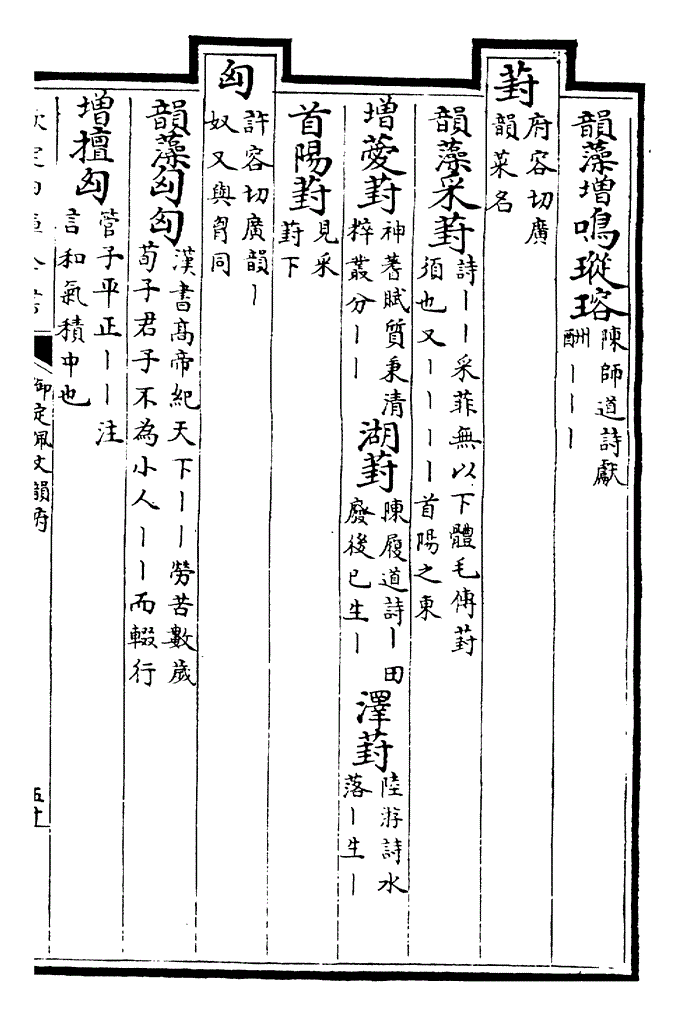 韻藻增鳴瑽瑢陳師道詩獻酬丨丨丨
葑府容切廣韻菜名
韻藻采葑詩丨丨采菲無以下體毛傳葑須也又丨丨丨丨首陽之東
增薆葑神蓍賦質秉清粹叢分丨丨湖葑陳履道詩丨田廢後已生丨澤葑陸游詩水落丨生丨
首陽葑見采葑下
匈許容切廣韻丨奴又與胷同
韻藻匈匈漢書高帝紀天下丨丨勞苦數歲荀子君子不為小人丨丨而輟行
增擅匈管子平正丨丨注言和氣積中也
御定佩文韻府
五十